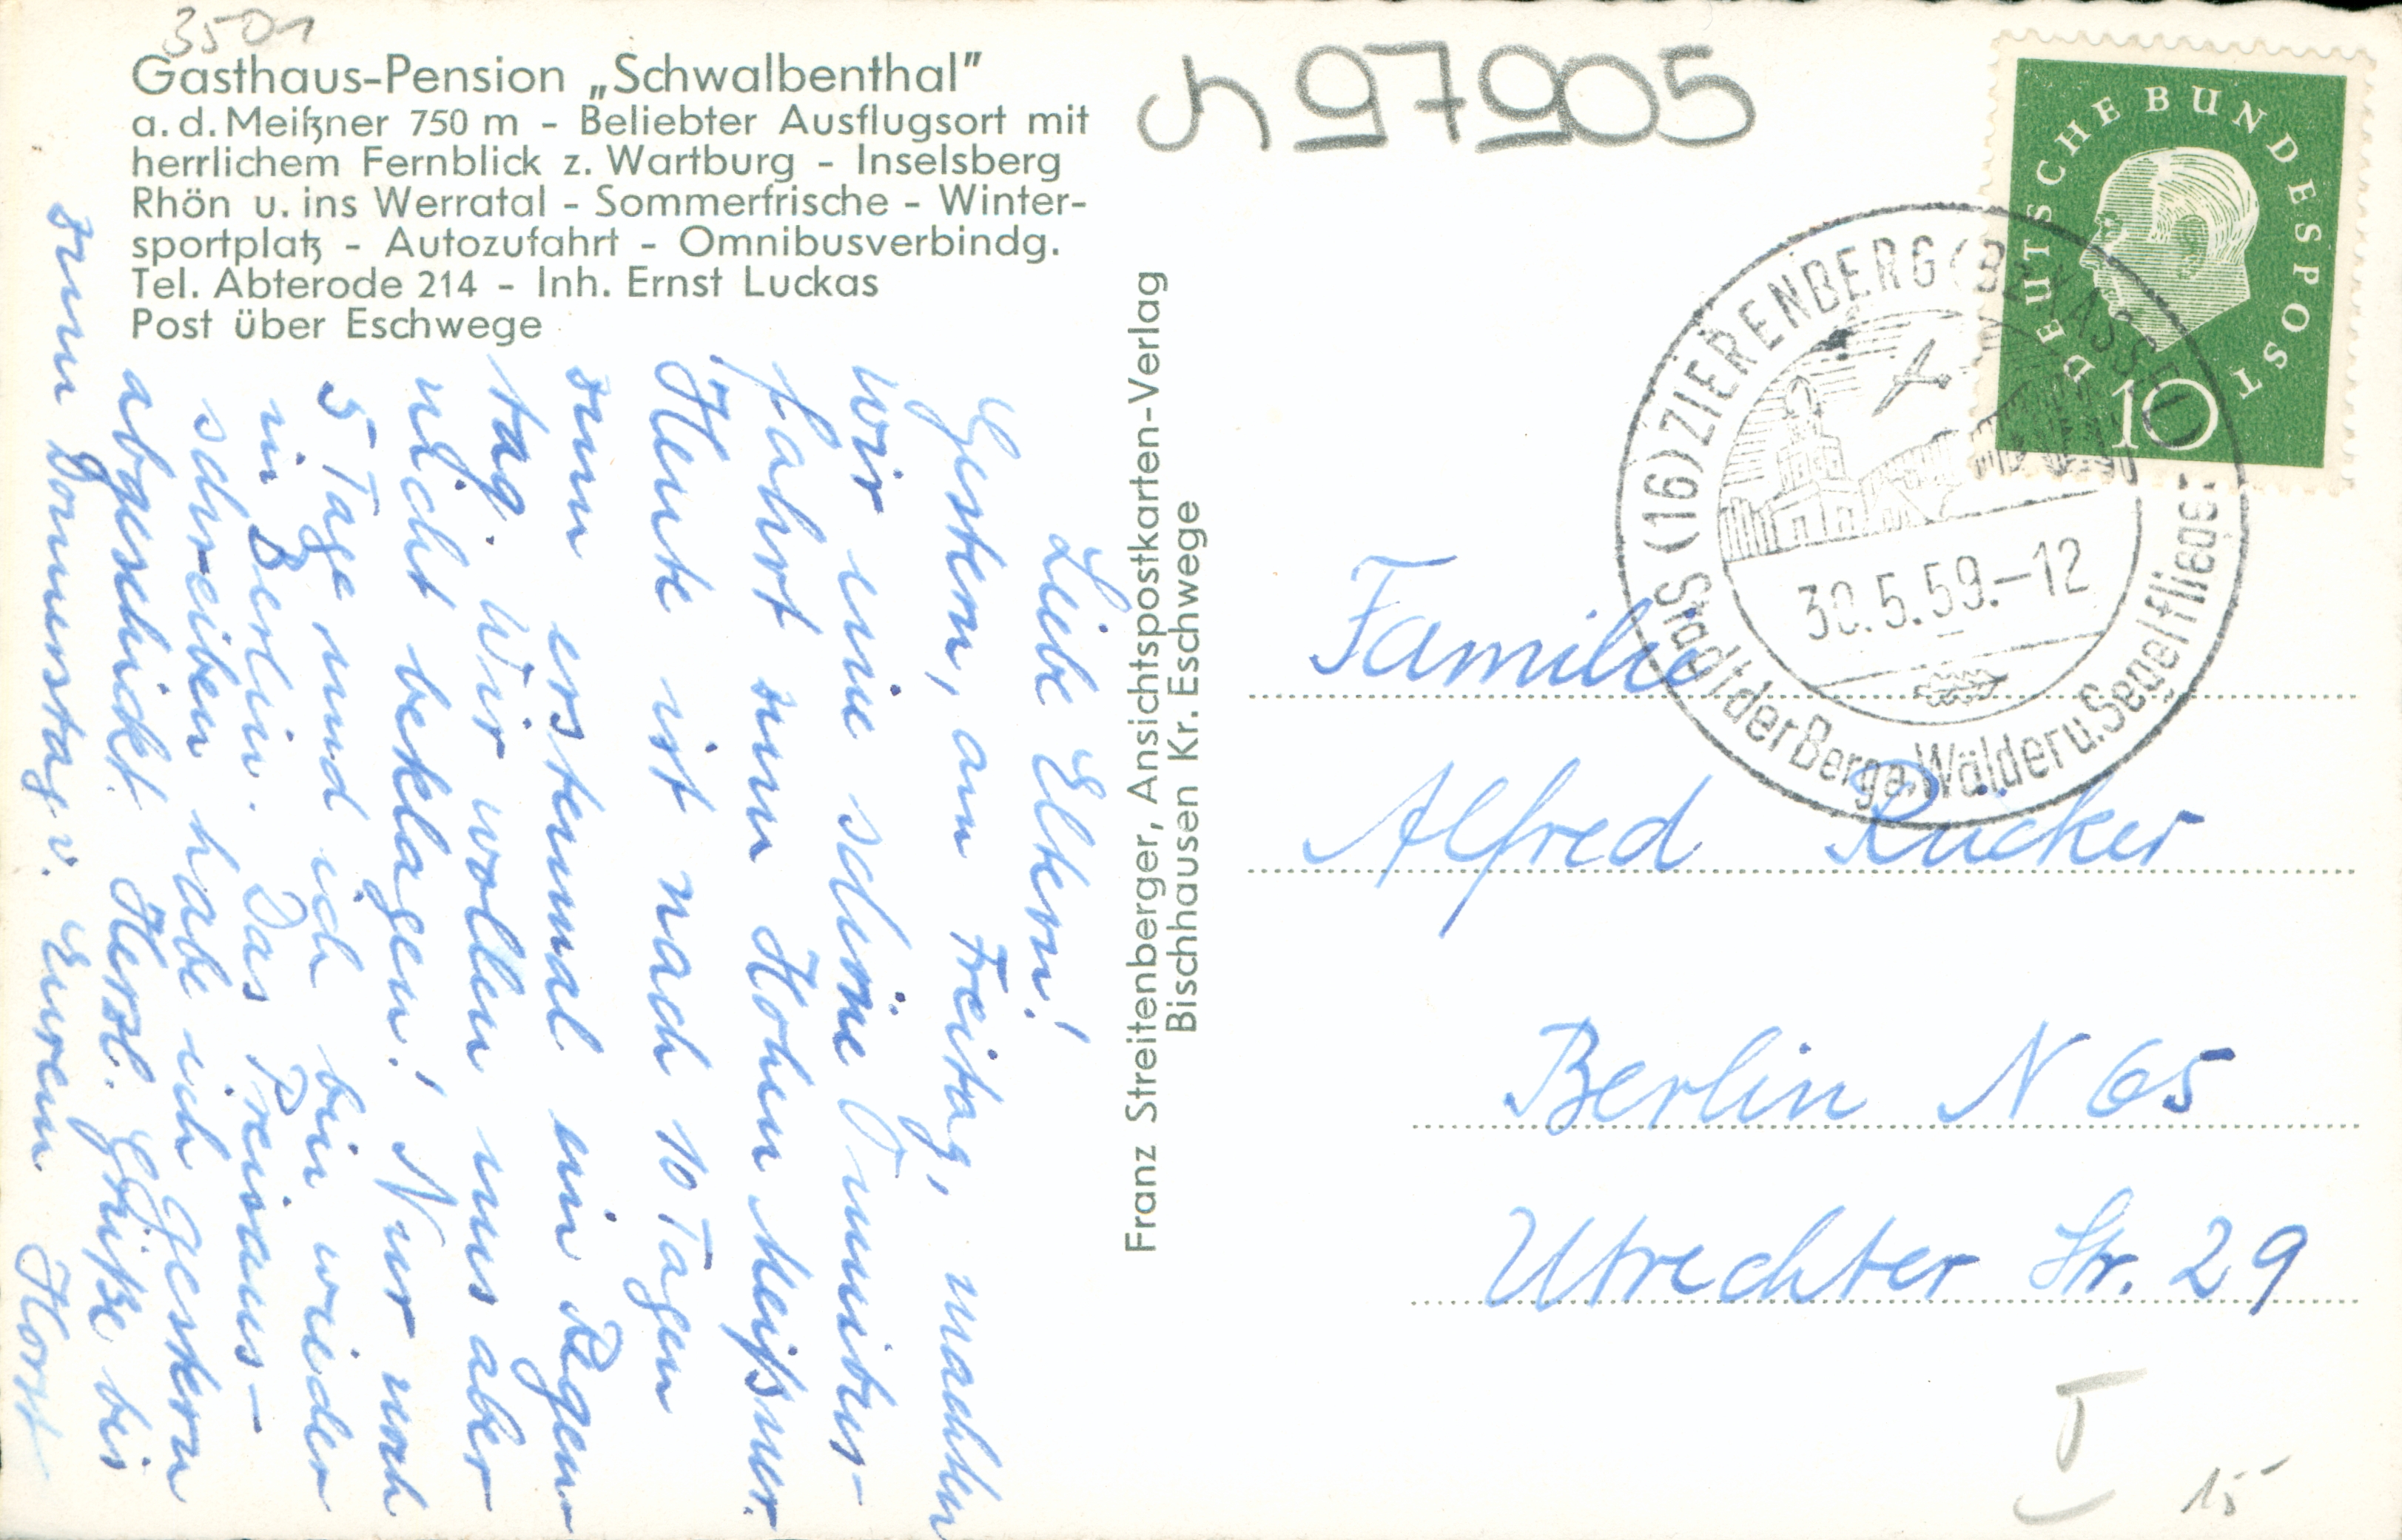 3501
Gasthaus-Pension „Schwalbenthal"
a. d. Meißner 750 m - Beliebter Ausflugsort mit
herrlichem Fernblick z. Wartburg - Inselsberg
Rhön u. ins Werratal - Sommerfrische - Winter-
sportplatz - Autozufahrt - Omnibusverbindg.
Tel. Abterode 214 - Inh. Ernst Luckas
Post über Eschwege
Liebe Eltern!
Gestern, am Freitag, machten
wir eine schöne Omnibus-
fahrt zum Hohen Meißner.
Heute ist nach 10 Tagen
zum erstenmal ein Regen
tag. Wir wollen uns aber
nicht beklagen! Nur noch
5 Tage und ich bin wieder
in Berlin. Das Preisaus-
schreiben habe ich gestern
abgeschickt. Herzl. Grüße bis
zum Donnerstag v. Eurem Horst
Franz Streitenberger, Ansichtspostkarten-Verlag
Bischhausen Kr. Eschwege
97905
DEUTSCHE BUNDESPOST
10
(16) ZIERENBERG (BZ. KASSEL)
30.5.59.-12
Stadt der Berge, Wälder u. Segelflieger
Familie
Alfred Rücker
Berlin N 65
Utrechter Str. 29
15